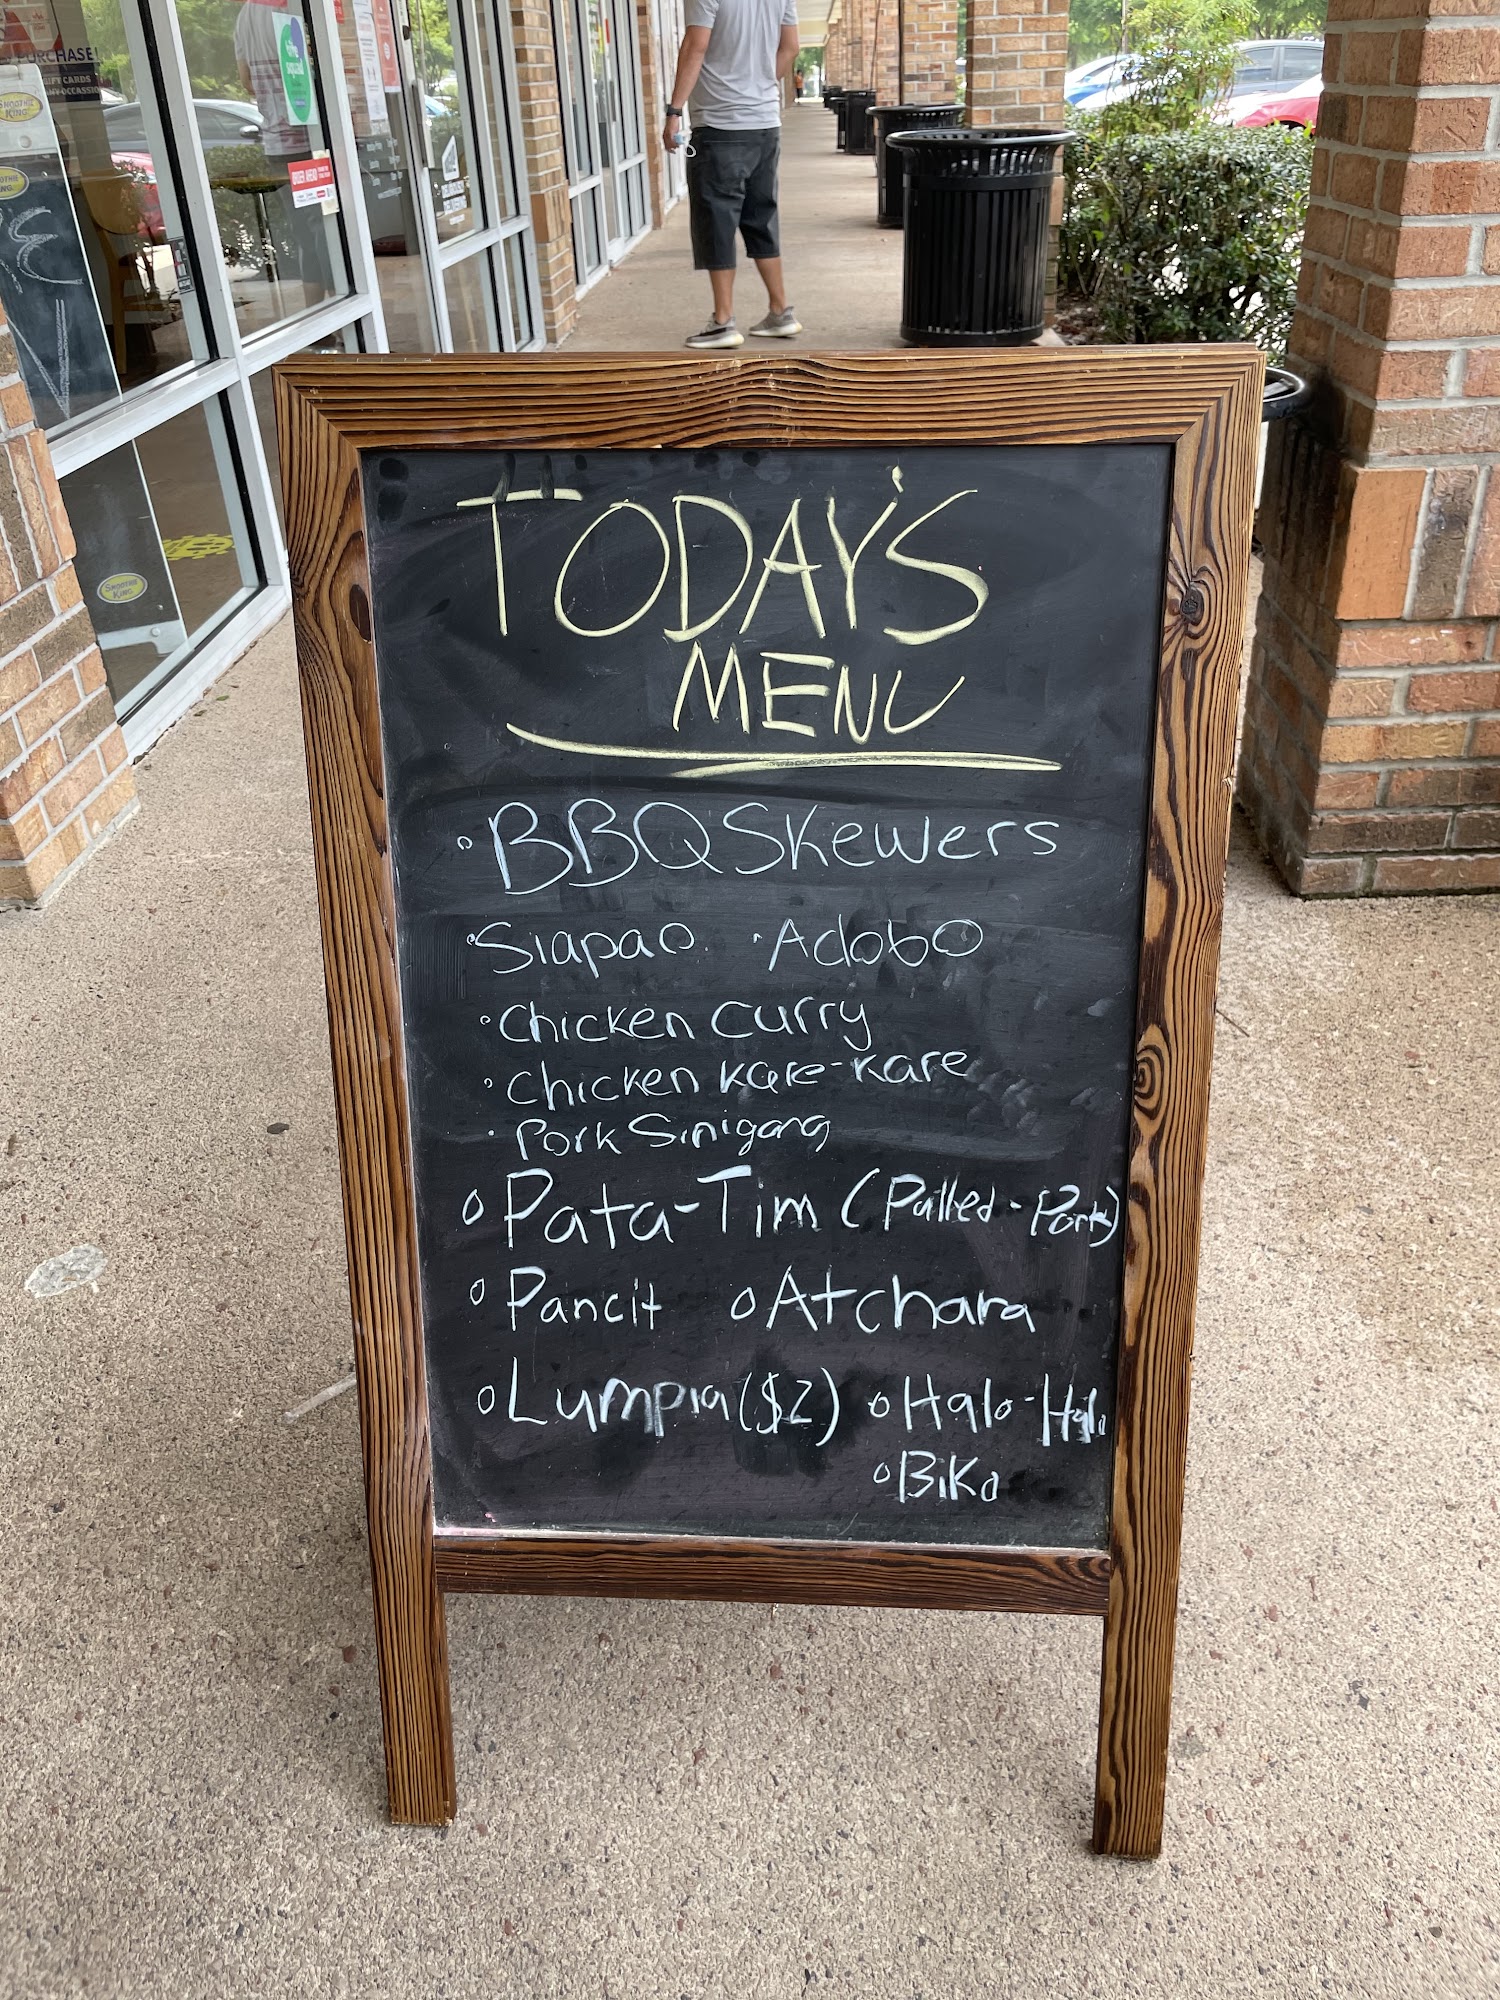 PURCHASE!
GIFT CARDS
SMOOTHIE KING
ORDER AHEAD
SMOOTHIE KING
TODAY'S
MENU
• BBQ Skewers
• Siapao • Adobo
• Chicken Curry
• Chicken Kare-Kare
• Pork Sinigang
• Pata-Tim (Pulled-Pork)
• Pancit • Atchara
• Lumpia ($2) • Halo-Halo
• Biko